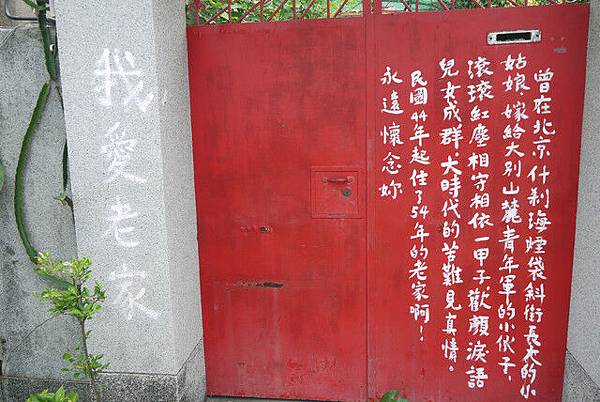 曾在北京什刹海煙袋斜街長大的小
姑娘．嫁給大別山麓青年軍的小伙子，
滾滾紅塵相守相依一甲子歡顏淚語
兒女成群大時代的苦難見真情。
民國44年起住了54年的老家啊！
永遠懷念妳
我愛老家